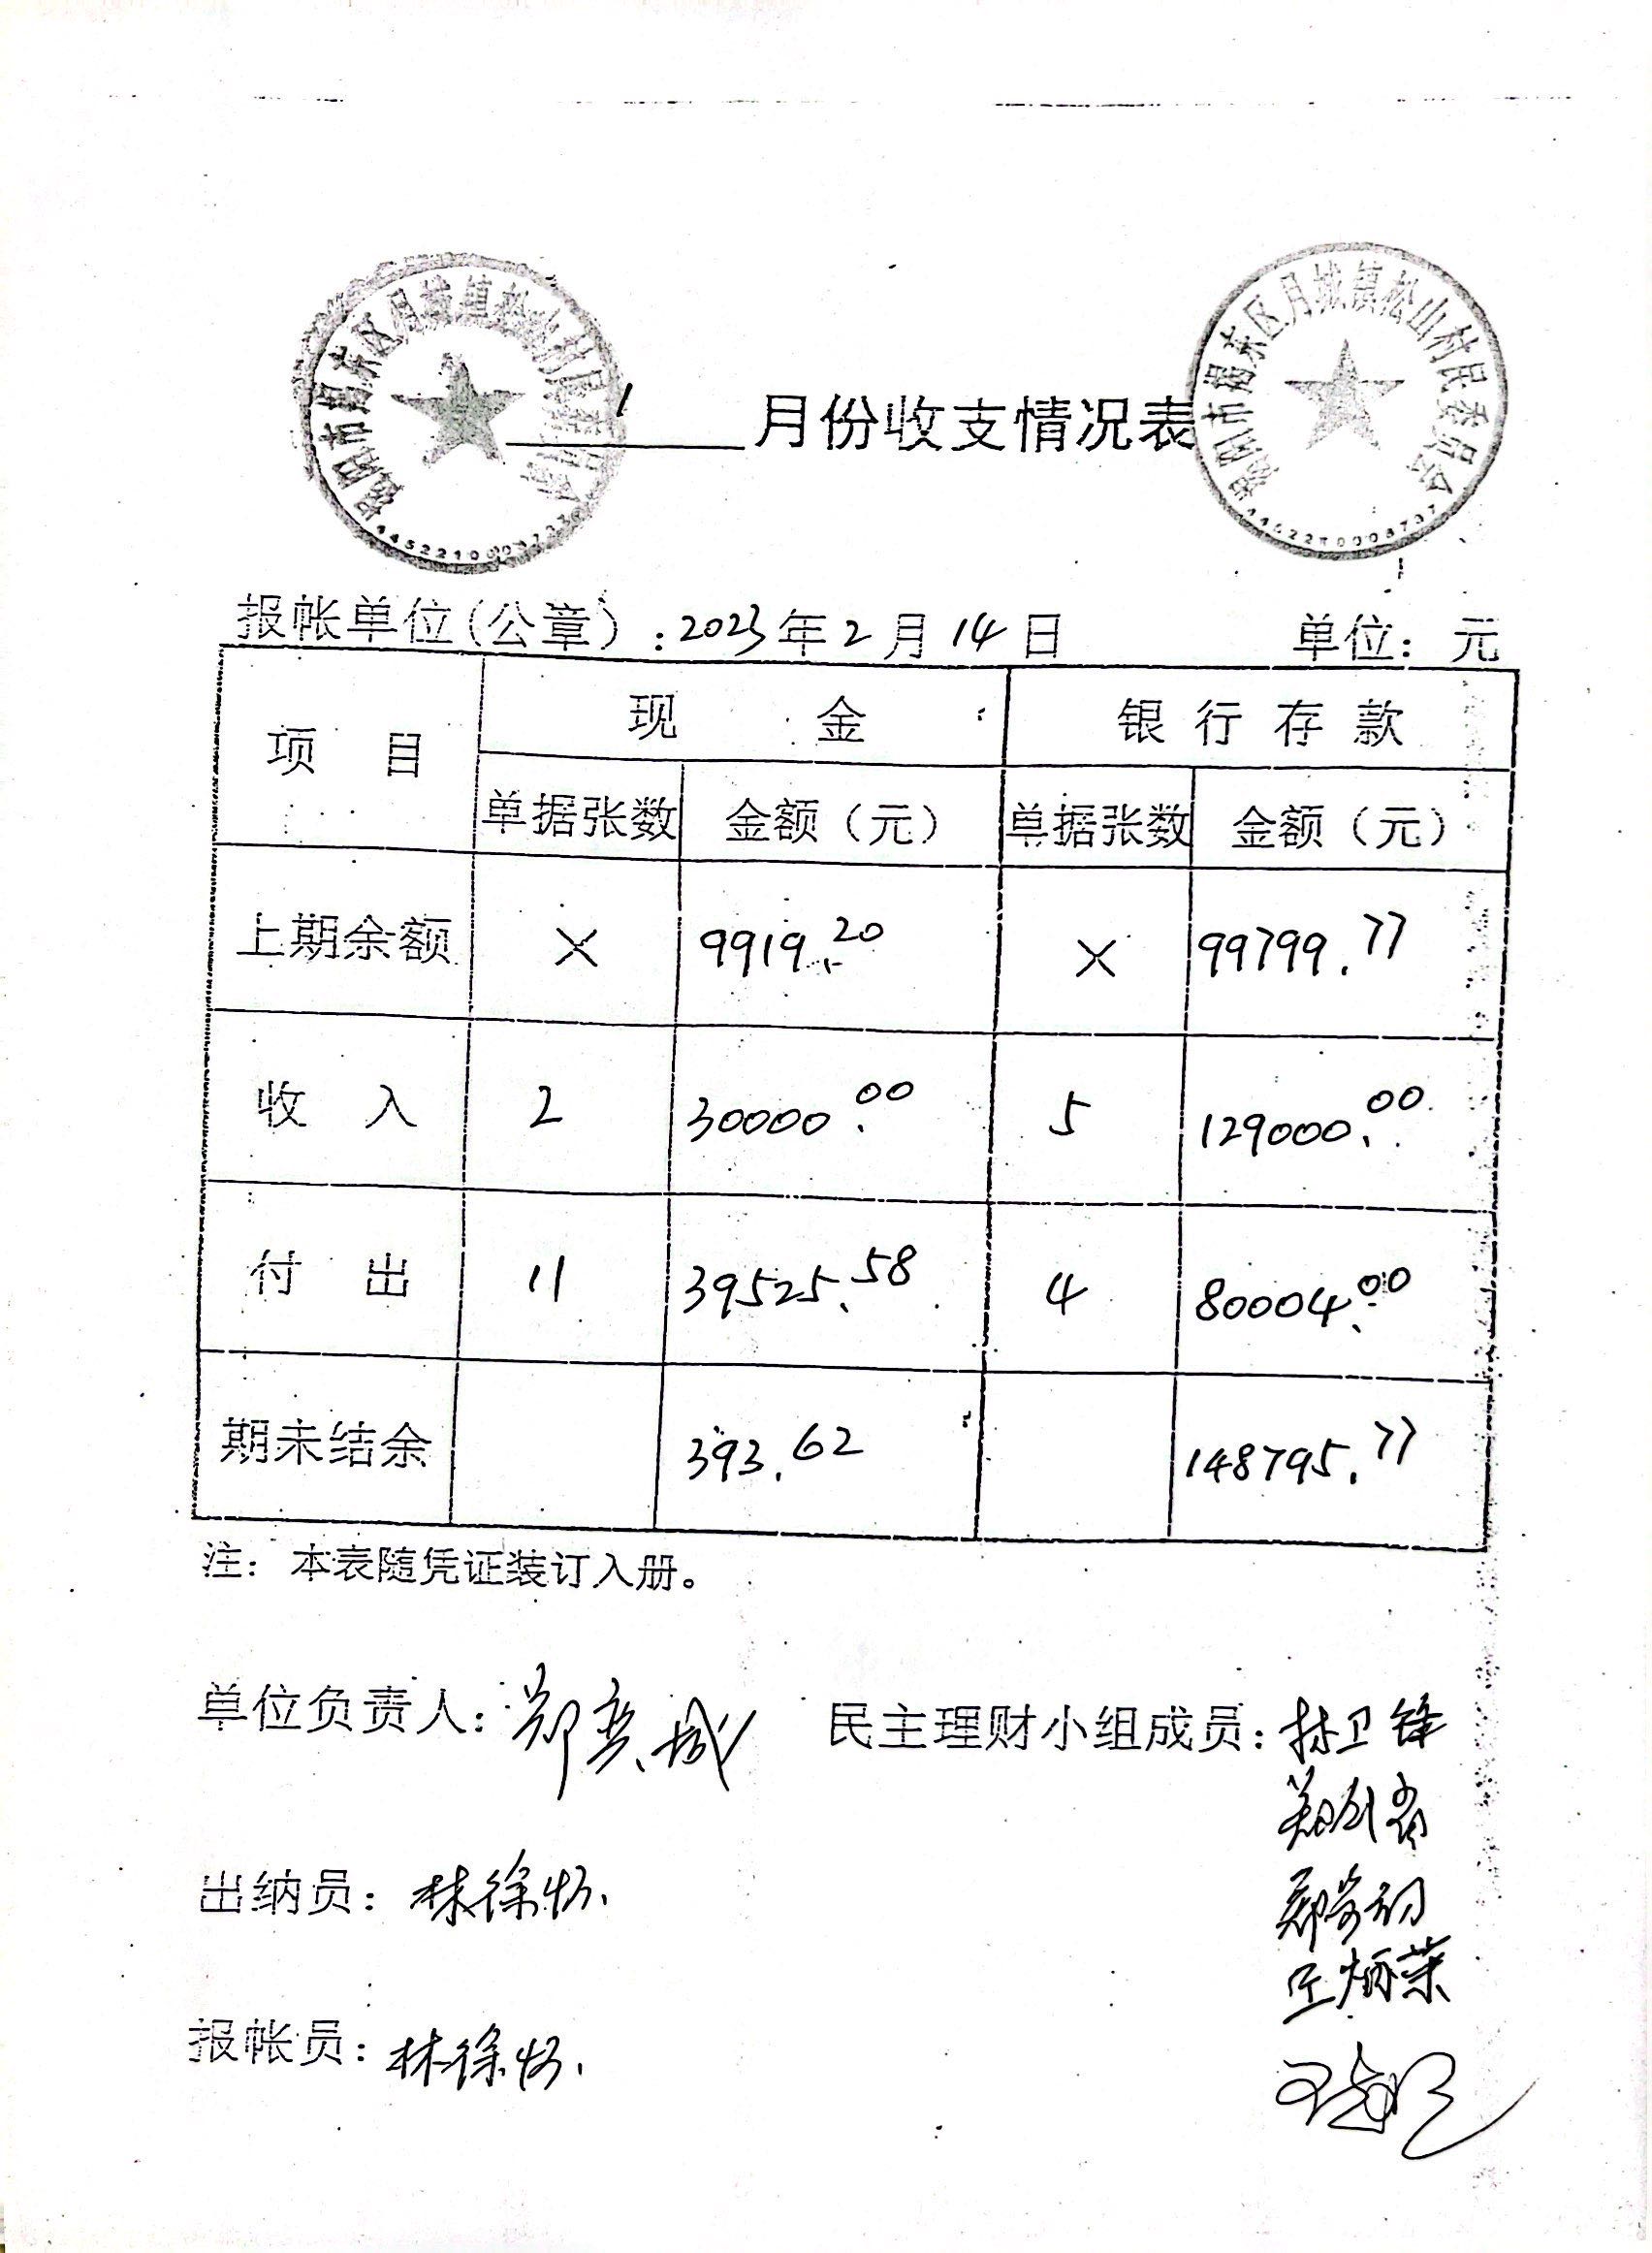 揭阳市揭东区月城镇松山村民
揭阳市揭东区月城镇松山村民委员会
1 月份收支情况表
报帐单位(公章):2023年2月14日 单位: 元
项 目 现 金 银行存款
单据张数 金额(元) 单据张数 金额(元)
上期余额 × 9919.20 × 99799.77
收 入 2 30000.00 5 129000.00
付 出 11 39525.58 4 80004.00
期未结余 393.62 148795.77
注: 本表随凭证装订入册。
单位负责人: 郑 民主理财小组成员: 林卫锋
出纳员: 林徐怀
王炳荣
报帐员: 林徐怀